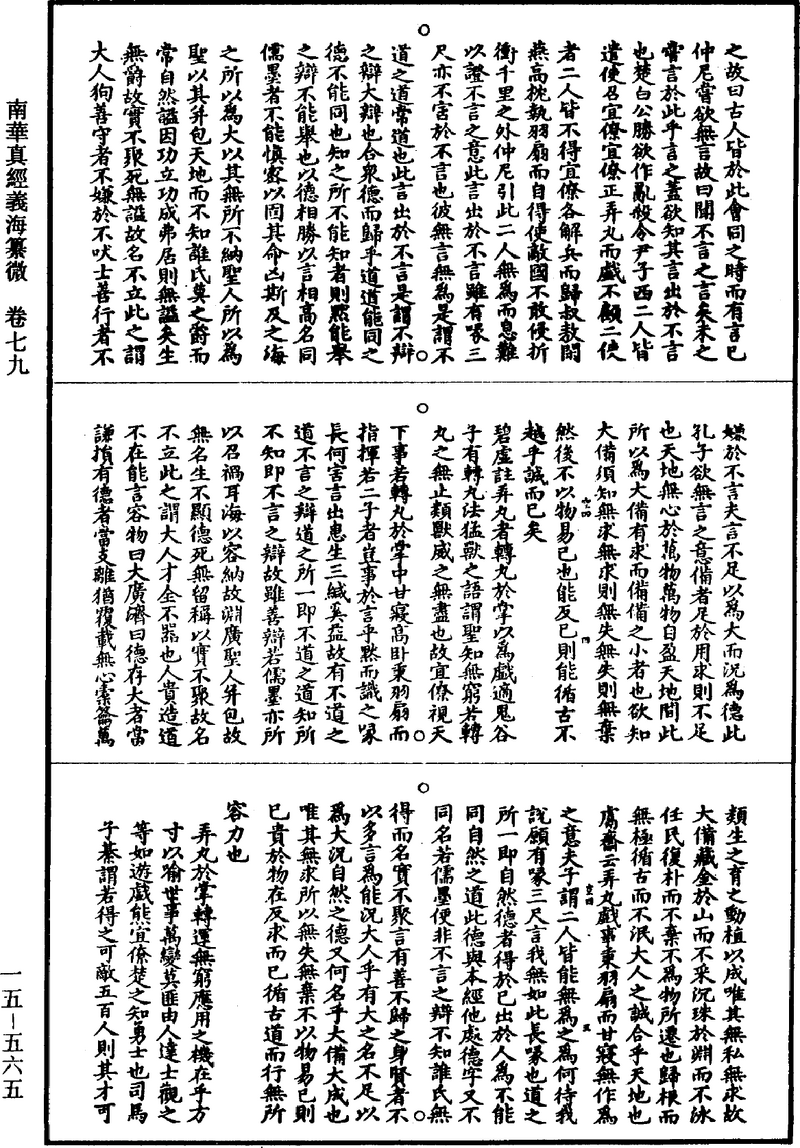 南華真經義海纂微　卷七九
之故曰古人皆於此會同之時而有言已
仲尼嘗欲無言故曰聞不言之言矣未之
嘗言於此乎言之蓋欲知其言出於不言
也楚白公勝欲作亂殺令尹子西二人皆
遣使召宜僚宜僚正弄丸而戲不顧二使
者二人皆不得宜僚各解兵而歸叔敖閒
燕高枕執羽扇而自得使敵國不敢侵折
衝千里之外仲尼引此二人無為而息難
以證不言之意此言出於不言雖有喙三
尺亦不害於不言也彼無言無為是謂不
道之道常道也此言出於不言是謂不辯
之辯大辯也合衆德而歸乎道道能同之
德不能同也知之所不能知者則黙能舉
之辯不能舉也以德相勝以言相高名同
儒墨者不能慎密以固其命凶斯及之海
之所以為大以其無所不納聖人所以為
聖以其并包天地而不知誰氏莫之爵而
常自然謚因功立功成弗居則無謚矣生
無爵故實不聚死無謚故名不立此之謂
大人狗善守者不嫌於不吠士善行者不
嫌於不言夫言不足以為大而況為德此
孔子欲無言之意備者足於用求則不足
也天地無心於萬物萬物自盈天地間此
所以為大備有求而備備之小者也欲知
大備須知無求無求則無失無失則無棄
然後不以物易己也能反己則能循古不
越乎誠而已矣
碧虛註弄丸者轉丸於掌以為戲適鬼谷
子有轉丸法猛獸之語謂聖知無窮若轉
丸之無止類獸威之無盡也故宜僚視天
下事若轉丸於掌中甘寢高卧秉羽扇而
指揮若二子者豈事於言乎黙而識之喙
長何害言出患生三緘奚益故有不道之
道不言之辯道之所一即不道之道知所
不知即不言之辯故雖善辯若儒墨亦所
以召禍耳海以容納故淵廣聖人并包故
無名生不顯德死無留稱以實不聚故名
不立此之謂大人才全不器也人貴造道
不在能言容物曰大廣濟曰德存大者當
謙損有德者當支離猶覆載無心橐籥萬
類生之育之動植以成唯其無私無求故
大備藏金於山而不采沉珠於淵而不泳
任民復朴而不棄不為物所遷也歸根而
無極循古而不泯大人之誠合乎天地也
鬳齋云弄丸戲事秉羽扇而甘寢無作為
之意夫子謂二人皆能無為之為何待我
說願有喙三尺言我無如此長喙也道之
所一即自然德者得於己出於人為不能
同自然之道此德與本經他處德字又不
同名若儒墨便非不言之辯不知誰氏無
得而名實不聚言有善不歸之身賢者不
以多言為能況大人乎有大之名不足以
為大況自然之德又何名乎大備大成也
唯其無求所以無失無棄不以物易己則
已貴於物在反求而已循古道而行無所
容力也
弄丸於掌轉運無窮應用之機在乎方
寸以喻世事萬變莫匪由人達士觀之
等如遊戲能宜僚楚之知勇士也司馬
子綦謂若得之可敵五百人則其才可
一五－五六五